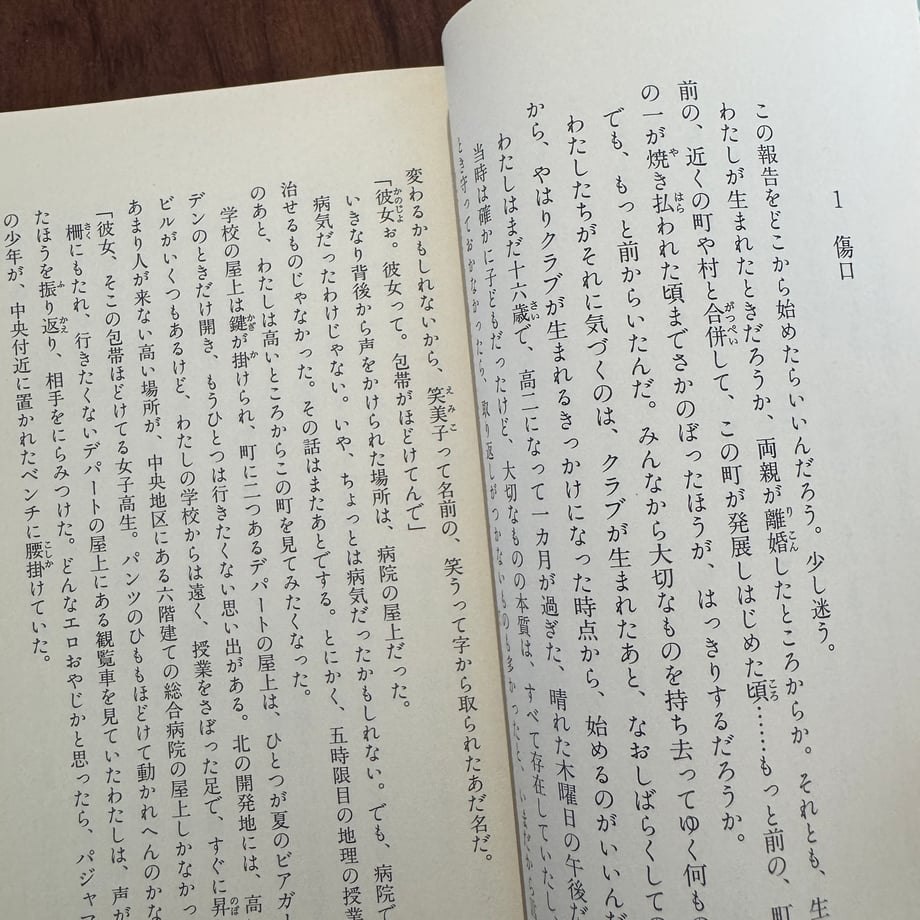 1 傷口
この報告をどこから始めたらいいんだろう。少し迷う。
わたしが生まれたときだろうか、両親が離婚したところからか。それとも、生
前の、近くの町や村と合併して、この町が発展しはじめた頃……もっと前の、町
の一が焼き払われた頃までさかのぼったほうが、はっきりするだろうか。
でも、もっと前からいたんだ。みんなから大切なものを持ち去ってゆく何もの
わたしたちがそれに気づくのは、クラブが生まれたあと、なおしばらくしての
から、やはりクラブが生まれるきっかけになった時点から、始めるのがいいんだ
わたしはまだ十六歳で、高二になって一カ月が過ぎた、晴れた木曜日の午後だ
当時は確かに子どもだったけど、大切なものの本質は、すべて存在していたし、
とき守っておかなかったら、取り返しがつかないものも多かったと、いまだから
変わるかもしれないから、笑美子って名前の、笑うって字から取られたあだ名だ。
「彼女ぉ。彼女って。包帯がほどけてんで」
いきなり背後から声をかけられた場所は、病院の屋上だった。
病気だったわけじゃない。いや、ちょっとは病気だったかもしれない。でも、病院で
治せるものじゃなかった。その話はまたあとでする。とにかく、五時限目の地理の授業
のあと、わたしは高いところからこの町を見てみたくなった。
学校の屋上は鍵が掛けられ、町に二つあるデパートの屋上は、ひとつが夏のビアガー
デンのときだけ開き、もうひとつは行きたくない思い出がある。北の開発地には、高
ビルがいくつもあるけど、わたしの学校からは遠く、授業をさぼった足で、すぐに昇
あまり人が来ない高い場所が、中央地区にある六階建ての総合病院の屋上しかなかっ
「彼女、そこの包帯ほどけてる女子高生。パンツのひももほどけて動かれへんのかな
柵にもたれ、行きたくないデパートの屋上にある観覧車を見ていたわたしは、声が
たほうを振り返り、相手をにらみつけた。どんなエロおやじかと思ったら、パジャマ
の少年が、中央付近に置かれたベンチに腰掛けていた。